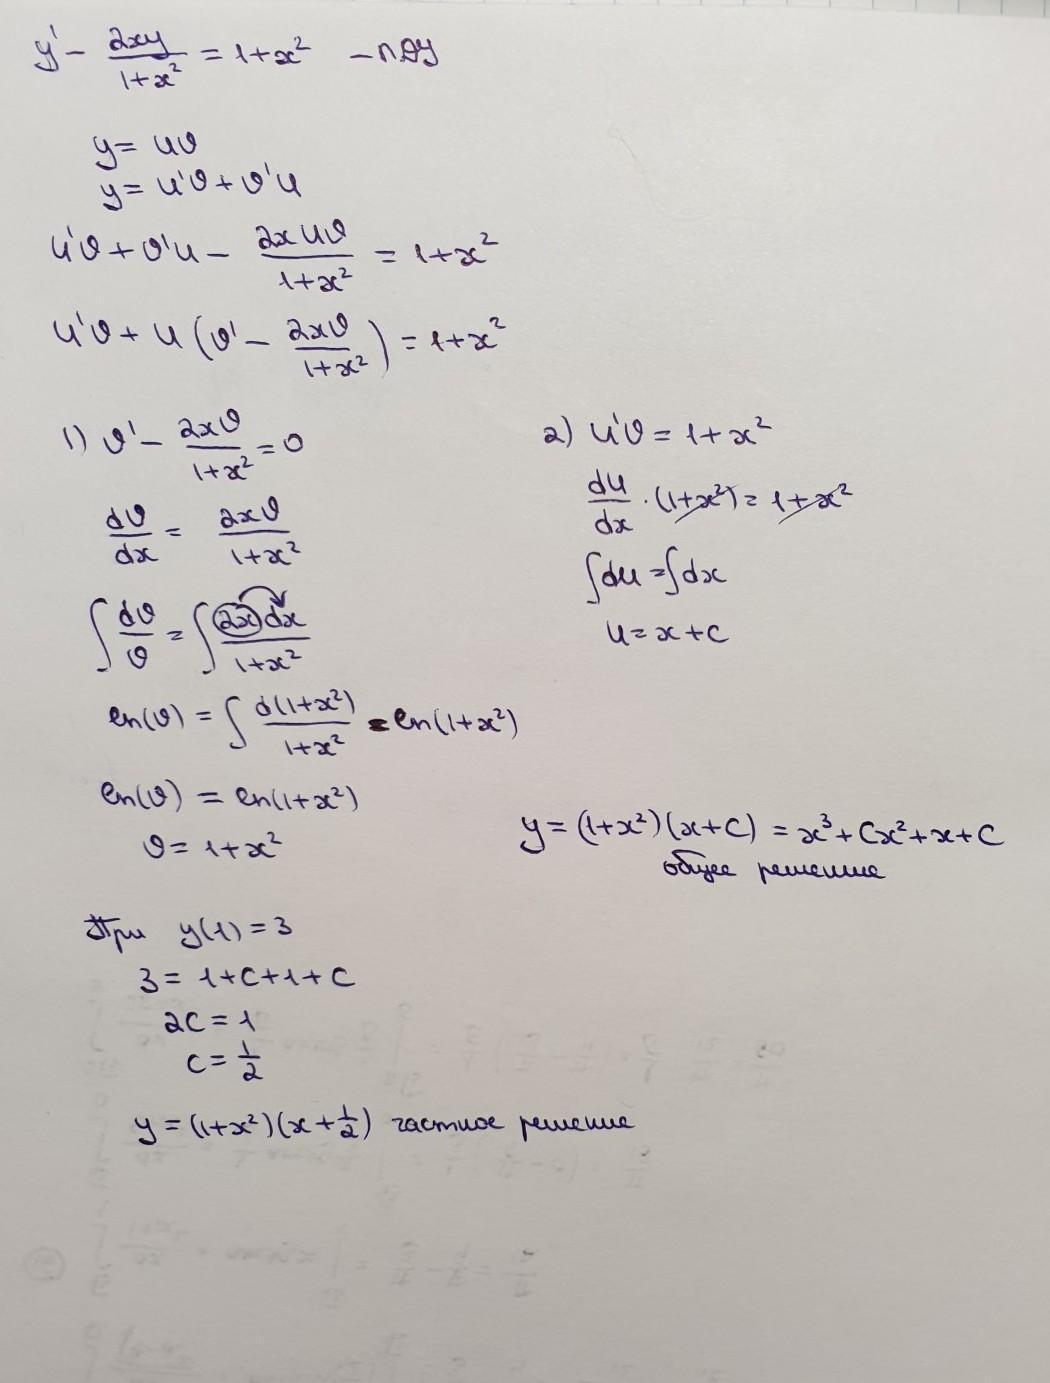 y' - 2xy/(1+x²) = 1+x² - ЛДУ
y = uv
y = u'v + v'u
u'v + v'u - 2xuv/(1+x²) = 1+x²
u'v + u(v' - 2xv/(1+x²)) = 1+x²
1) v' - 2xv/(1+x²) = 0
dv/dx = 2xv/(1+x²)
∫dv/v = ∫2xdx/(1+x²)
ln(v) = ∫d(1+x²)/(1+x²) = ln(1+x²)
ln(v) = ln(1+x²)
v = 1+x²
2) u'v = 1+x²
du/dx · (1+x²) = 1+x²
∫du = ∫dx
u = x+c
y = (1+x²)(x+C) = x³+Cx²+x+C
общее решение
При y(1) = 3
3 = 1+C+1+C
2C = 1
C = 1/2
y = (1+x²)(x+1/2) частное решение